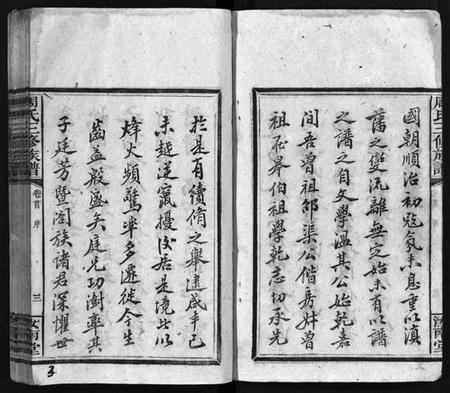 國朝順治初寇氛未息重以滇
藩之變流離無定始未有以譜
之譜之自文學溫其公始乾嘉
間吾曾祖邰渠公偕房叔曾
祖丕舉伯祖學乾志切承先
於是有續脩之舉逮咸辛已
未越逆竄擾後居是境此以
烽火頻驚率多遷徙今生
齒益殷盛矣庭兄功澍率其
子廷芳暨闔族諸君深懼世
周氏三修族譜
卷首
序
三
汝南堂
周氏三修族譜
汝南堂
3